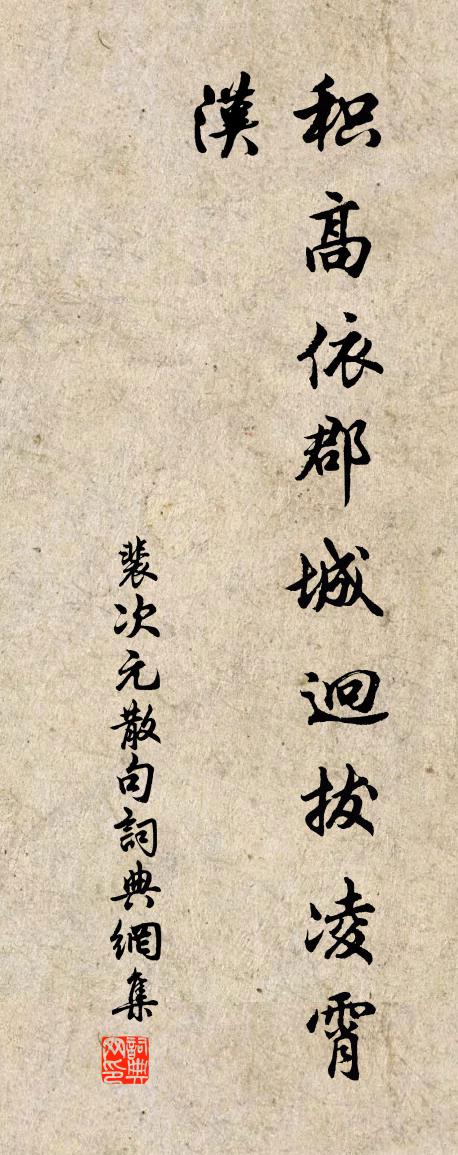 积高依郡城迥拔凌霄
漢
裴次元散句詞典網集
詞典网印